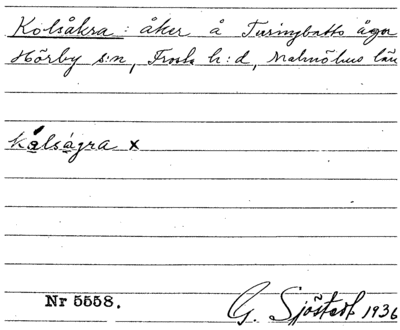 Kolsåkra: åker å Turingbatts ägor
Hörby s:n, Frosta h:d, Malmöhus län
kålságra x
Nr 5558. G. Sjöstedt 1936